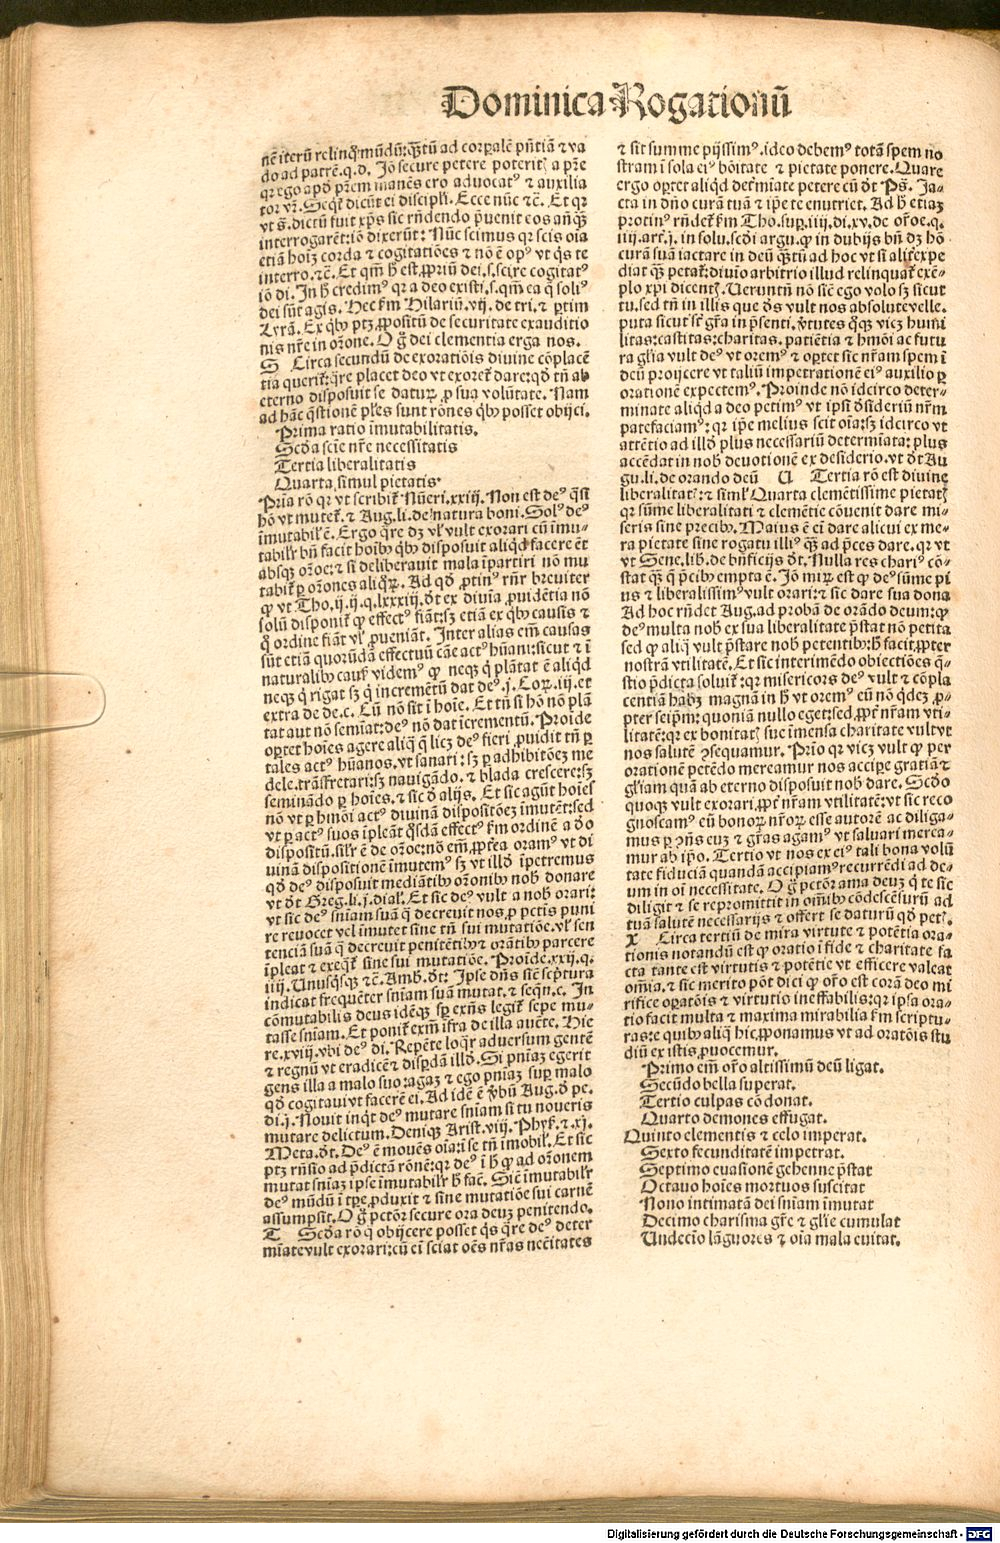 Dominica Rogationū
nē iterū relinq̄ mūdū: q̄tū ad corꝑalē p̄ntiā ⁊ va
do ad patrē.q.d. Jō secure petere poteritꝭ a pr̄e
qꝛ ego apď prēm manēs ero aduocatꝰ ⁊ auxilia
tor vr̄. Seqͥt dicūt ei discipli. Ecce nūc ⁊c̄. Et qꝛ
vt s̄. dictū fuit xp̄s sic rn̄dendo p̄uenit eos an̄qꝫ
interrogarēt: iō dixerūt: Nūc scimus qꝛ scis oīa
etiā hoīꝫ corda ⁊ cogitatiōes ⁊ nō ē opꝰ vt q̄s te
interro.⁊c̄. Et qm̄ h̄ est ꝓpriū dei.s.scire cogitatꝰ
iō di. Jn h̄ credimꝰ qꝛ a deo existi.s.qm̄ ea q̄ soliꝰ
dei sūt agis. Hec ẜm Hilariū.vij. de tri.⁊ ꝑtim
Lyrā. Ex qͥbꝫ ptꝫ ꝓpositū de securitate exauditio
nis nr̄e in orōne. O g̊ dei clementia erga nos.
S Circa secundū de exoratiōis diuine cōplacē
tia querit̄: q̄re placet deo vt exoret̄ dare: qď tn̄ ab
eterno disposuit se daturꝫ ꝓ sua volūtate. Nam
ad hāc q̄stionē pl̄es sunt rōnes qͥbꝫ posset obijci.
Prima ratio īmutabilitatis.
Scďa scīe nr̄e necessitatis
Tertia liberalitatis
Quarta simul pietatis
Prīa rō qꝛ vt scribit̄ Nūeri.xxiij. Non est deꝰ q̄si
hō vt mutet̄.⁊ Aug.li.de natura boni. Solꝰ deꝰ
īmutabil̓ ē. Ergo q̄re dꝫ vl̓ vult exorari cū īmu-
tabilr̄ bn̄ facit hoībꝫ qͥbꝫ disposuit aliqď facere ēt
absqꝫ orōe: ⁊ si deliberauit mala īpartiri nō mu
tabit̄ ꝑ orōnes aliqͦꝝ. Ad qď ꝓtinꝰ rn̄r breuiter
ꝙ vt Tho.ij.ij.q.lxxxiij.ďt ex diuīa ꝓuidētia nō
solū disponit̄ ꝙ effectꝰ fiāt: sꝫ etiā ex qͥbꝫ causis ⁊
q̊ ordine fiāt vl̓ ꝓueniāt. Jnter alias em̄ causas
sūt etiā quorūdā effectuū cāe actꝰ hūani: sicut ⁊ ī
naturalibꝫ causꝭ videmꝰ ꝙ neqꝫ q̄ plātat ē aliqd
neqꝫ q̄ rigat sꝫ q̄ incremētū dat deꝰ.j. Cor.iij. et
extra de de.c. Cū nō sit ī hoīe. Et tn̄ si hō nō plā
tat aut nō semīat: deꝰ nō dat īcrementū. Proīde
oꝑtet hoīes agere aliq̄ q̄ licꝫ deꝰ fieri ꝓuidit tn̄ ꝑ
tales actꝰ hūanos.vt sanari: sꝫ ꝑ adhibitōeꝫ me
dele.trāsfretari: sꝫ nauigādo.⁊ blada crescere: sꝫ
seminādo ꝑ hoīes.⁊ sic ď alijs. Et sic agūt hoīes
nō vt ꝑ hm̄ōi actꝰ diuinā dispositōeꝫ īmutēt: sed
vt ꝑ actꝰ suos īpleāt q̊sdā effectꝰ ẜm ordinē a ďo
dispositū. silr̄ ē de orōe: nō em̄ ꝓpt̓ea oramꝰ vt di
uinā dispositionē īmutemꝰ sꝫ vt illď īpetremus
qď deꝰ disposuit mediātibꝫ orōnibꝫ nob̄ donare
vt ďt Greg.li.j.dial. Et sic deꝰ vult a nob̄ orari:
vt sic deꝰ sn̄iam suā q̄ decreuit nos ꝓ pctīs puni
re reuocet vel īmutet sine tn̄ sui mutatiōe.vl̓ sen
tenciā suā q̄ decreuit penitētibꝫ ⁊ orātibꝫ parcere
īpleat ⁊ exeq̄t̄ sine sui mutatiōe. Proīde.xxij.q.
iiij. Unusqͥsqꝫ ⁊c̄. Amb.ďt: Jpse dn̄s sic̄ sc̄ptura
indicat frequēter sn̄iam suā mutat.⁊ seqn̄.c. Jn
cōmutabilis deus idēqꝫ sꝑ exn̄s legit̄ sepe mu-
tasse sn̄iam. Et ponit̄ exm̄ īfra de illa aucte. Hie
re.xviij.vbi deꝰ di. Repēte loq̄r aduersum gentē
⁊ regnū vt eradicē ⁊ disꝑdā illď. Si pn̄iaꝫ egerit
gens illa a malo suo: agaꝫ ⁊ ego pn̄iaꝫ suꝑ malo
qď cogitaui vt facerē ei. Ad idē ē v̓bū Aug.ď pe.
di.j. Nouit inqͥt deꝰ mutare sn̄iam si tu noueris
mutare delictum. Deniqꝫ Arist.viij. Phyſ.⁊.xj.
Meta.ďt. Deꝰ ē mouēs oīa: ī se tn̄ īmobil̓. Et sic
ptꝫ rn̄sio ad p̄dictā rōnē: qꝛ deꝰ ī h̄ ꝙ ad orōnem
mutat sn̄iaꝫ ipse īmutabilr̄ h̄ facē. Sic̄ īmutabilr̄
deꝰ mūdū ī tꝑe ꝓduxit ⁊ sine mutatiōe sui carnē
assumpsit. O g̊ pctōr secure ora deuꝫ penitendo.
T Scďa rō q̄ obijcere posset q̄s q̄re deꝰ deter
mīate vult exorari: cū ei sciat oēs nr̄as nec̄itates
⁊ sit summe pijssimꝰ.ideo debemꝰ totā spem no
stram ī sola eiꝰ bōitate ⁊ pietate ponere. Quare
ergo oꝑtet aliqď determīate petere cū ďt Pš. Ja-
cta in dn̄o curā tuā ⁊ ip̄e te enutriet. Ad h̄ etiaꝫ
protinꝰ rn̄det̄ ẜm Tho.suꝑ.iiij.di.xv.de orōe.q.
iiij.art̄.j. in solu.scďi argu.ꝙ in dubijs bn̄ dꝫ hō
curā suā iactare in deū q̄tū ad hoc vt si alit̓ expe
diat q̄ꝫ petat̄: diuīo arbitrio illud relinquat̄ exē-
plo xp̄i dicentꝭ. Ueruntn̄ nō sic̄ ego volo sꝫ sicut
tu.sed tn̄ in illis que ďs vult nos absolute velle.
puta sicut st̄ gr̄a in p̄senti.v̓tutes q̄qꝫ vicꝫ humi
litas: castitas: charitas.patiētia ⁊ hm̄ōi ac futu
ra gl̄ia vult deꝰ vt oremꝰ ⁊ oꝑtet sic nr̄am spem ī
deū proijcere vt taliū impetrationē eiꝰ auxilio ꝑ
orationē expectemꝰ. Proinde nō idcirco deter-
minate aliqď a deo petimꝰ vt ipsi ďsideriū nr̄m
patefaciamꝰ: qꝛ ip̄e melius scit oīa: sꝫ idcirco vt
attētio ad illď plus necessariū determīata: plus
accēdat in nob̄ deuotionē ex desiderio.vt ďt Au
gu.li.de orando deū U Tertia rō est diuine
liberalitatꝭ: ⁊ siml̓ Quarta clemētissime pietatꝭ
qꝛ sūme liberalitati ⁊ clemētie cōuenit dare mi-
seris sine precibꝫ. Maius ē em̄ dare alicui ex me-
ra pietate sine rogatu illiꝰ q̄ꝫ ad p̄ces dare.qꝛ vt
vt Sene.lib̄.de bn̄ficijs ďt. Nulla res chariꝰ cō-
stat q̄ꝫ q̄ p̄cibꝫ empta ē. Jō miꝝ est ꝙ deꝰ sūme pi
us ⁊ liberalissimꝰ vult orari: ⁊ sic dare sua dona
Ad hoc rn̄det Aug.ad probā de orādo deum: ꝙ
deꝰ multa nob̄ ex sua liberalitate p̄stat nō petita
sed ꝙ aliq̄ vult p̄stare nob̄ petentibꝫ: h̄ facit ꝓpter
nostrā vtilitatē. Et sic interimēdo obiectiōes q̄-
stio p̄dicta soluit̄: qꝛ misericors deꝰ vult ⁊ cōpla
centiā habꝫ magnā in h̄ vt oremꝰ eū nō q̄deꝫ ꝓ-
pter seip̄m: quoniā nullo eget: sed ꝓpt̓ nr̄am vti-
litatē: qꝛ ex bonitatꝭ sue īmensa charitate vult vt
nos salutē ꝯsequamur. Prīo qꝛ vicꝫ vult ꝙ per
orationē petēdo mereamur nos accipe gratiā ⁊
gl̄iam quā ab eterno disposuit nob̄ dare. Scďo
quoqꝫ vult exorari ꝓpt̓ nr̄am vtilitatē: vt sic reco
gnoscamꝰ eū bonoꝝ nr̄oꝝ esse autorē ac diliga-
mus ꝑ ꝯn̄s euꝫ ⁊ gr̄as agamꝰ vt saluari merea-
mur ab ip̄o. Tertio vt nos ex eiꝰ tali bona volū
tate fiduciā quandā accipiamꝰ recurrēdi ad de-
um in oī necessitate. O g̊ pctōr ama deuꝫ q̄ te sic
diligit ⁊ se repromittit in oībꝫ cōdescēsurū ad
tuā salutē necessarijs ⁊ offert se daturū qď petꝭ.
X Circa tertiū de mira virtute ⁊ potētia ora-
tionis notandū est ꝙ oratio ī fide ⁊ charitate fa
cta tante est virtutis ⁊ potētie vt efficere valeat
om̄ia.⁊ sic merito pōt dici ꝙ or̄o est corā deo mi
rifice oꝑatōis ⁊ virtutis ineffabilis: qꝛ ipsa ora-
tio facit multa ⁊ maxima mirabilia ẜm scriptu-
ras: e quibꝫ aliq̄ hic ꝓponamus vt ad oratōis stu
diū ex istis ꝓuocemur.
Primo em̄ or̄o altissimū deū ligat.
Secūdo bella superat.
Tertio culpas cōdonat.
Quarto demones effugat.
Quinto elementis ⁊ celo imperat.
Sexto fecunditatē impetrat.
Septimo euasionē gehenne p̄stat
Octauo hoīes mortuos suscitat
Nono intimatā dei sn̄iam īmutat
Decimo charisma gr̄e ⁊ gl̄ie cumulat
Undecīo lāguores ⁊ oīa mala euitat.
Digitalisierung gefördert durch die Deutsche Forschungsgemeinschaft - DFG